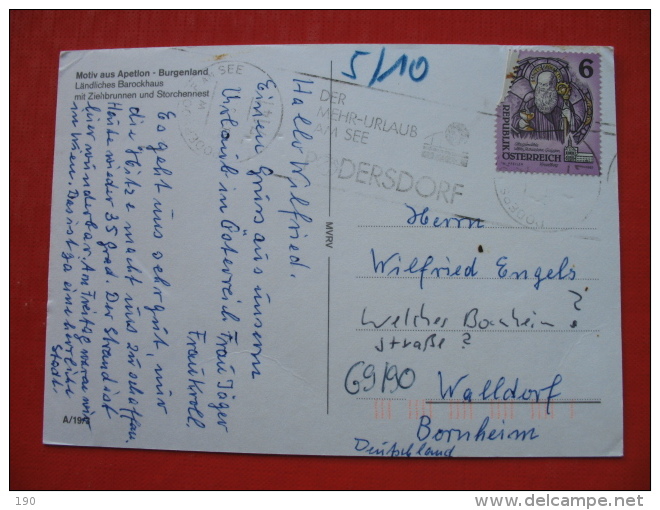 Motiv aus Apetlon · Burgenland
Ländliches Barockhaus
mit Ziehbrunnen und Storchennest
Hallo Wilfried.
Einen Gruß aus unserm
Urlaub in Österreich Frau Jäger
Frau Kroll
Es geht uns sehr gut, nur
die Hitze macht uns zu schaffen.
Heute wieder 35 Grad. Der Strand ist
hier wunderbar. Am Freitag waren wir
in Wien. Das ist ja eine herrliche
Stadt.
A/19/
MVRV
5/10
AM SEE
DER
MEHR-URLAUB
AM SEE
DERSDORF
6
REPUBLIK
ÖSTERREICH
Herrn
Wilfried Engels
Welches Bornheim ?
straße ?
69/90
Walldorf
Bornheim
Deutschland
190
delcampe.net